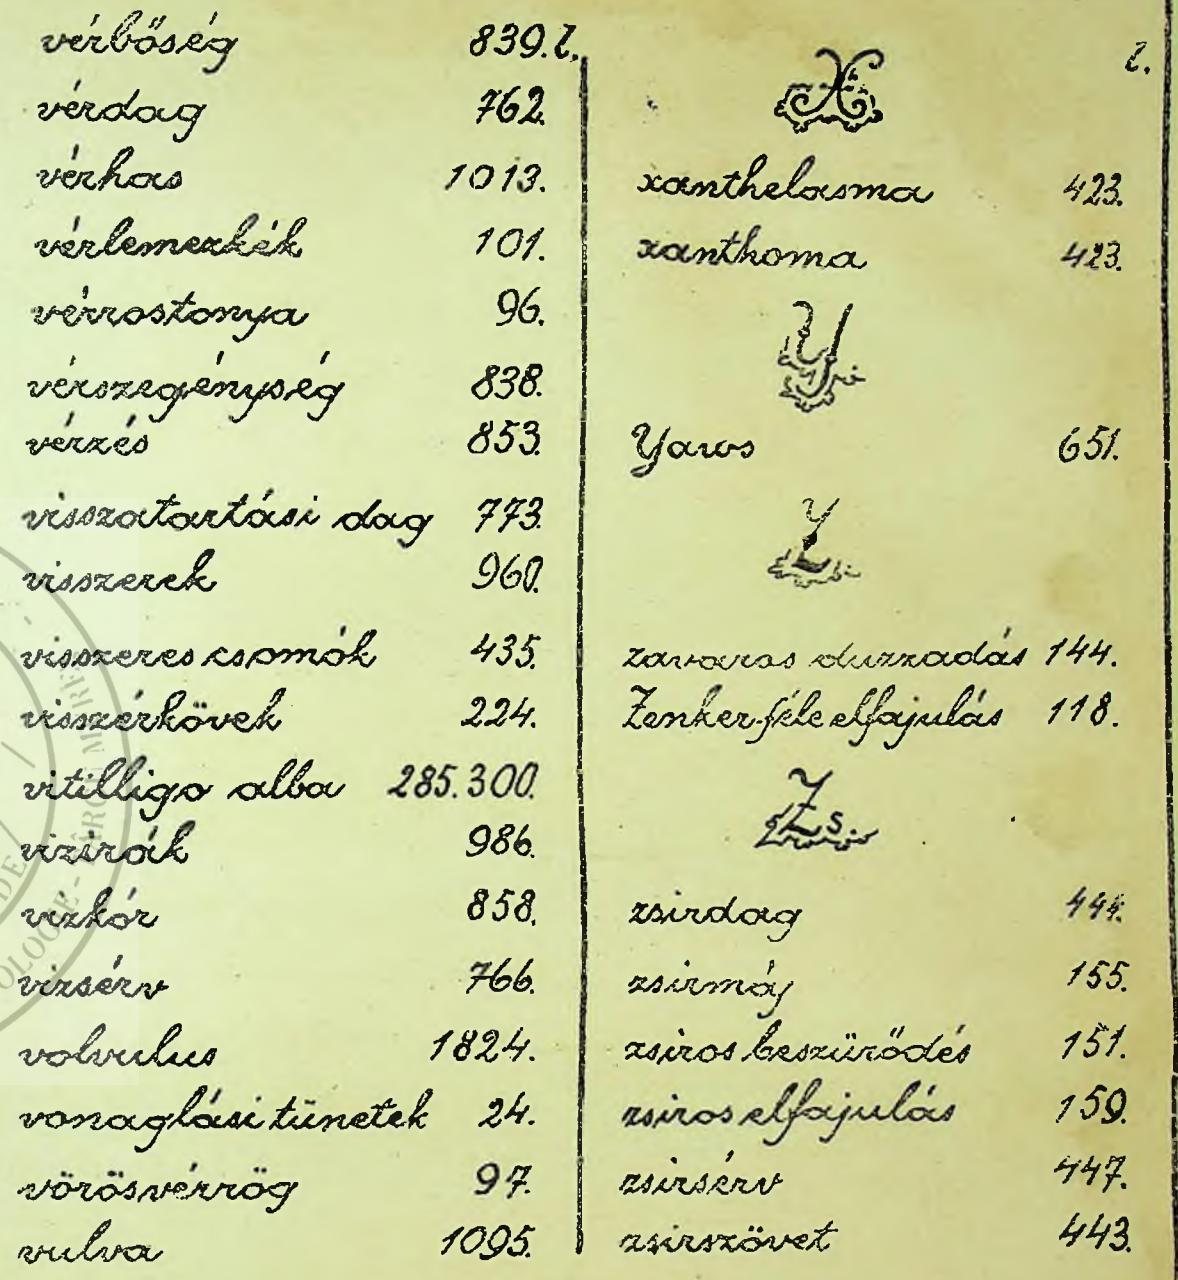 vérbőség 839. l.
vérdag 762.
vérhas 1013.
vérlemezkék 101.
vérrostonya 96.
vérszegénység 838.
vérzés 853.
visszatartási dag 773.
visszerek 960.
visszeres csomók 435.
visszérkövek 224.
vitilligo alba 285. 300.
vizirák 986.
vizkór 858.
vizsérv 766.
volvulus 1824.
vonaglási tünetek 24.
vörösvérrög 97.
vulva 1095.
l.
X
xanthelasma 423.
xanthoma 423.
Y
Yaws 651.
Z
zavaros duzzadás 144.
Zenker-féle elfajulás 118.
Zs.
zsirdag 444.
zsirmáj 155.
zsiros beszürődés 151.
zsiros elfajulás 159.
zsirsérv 447.
zsirszövet 443.